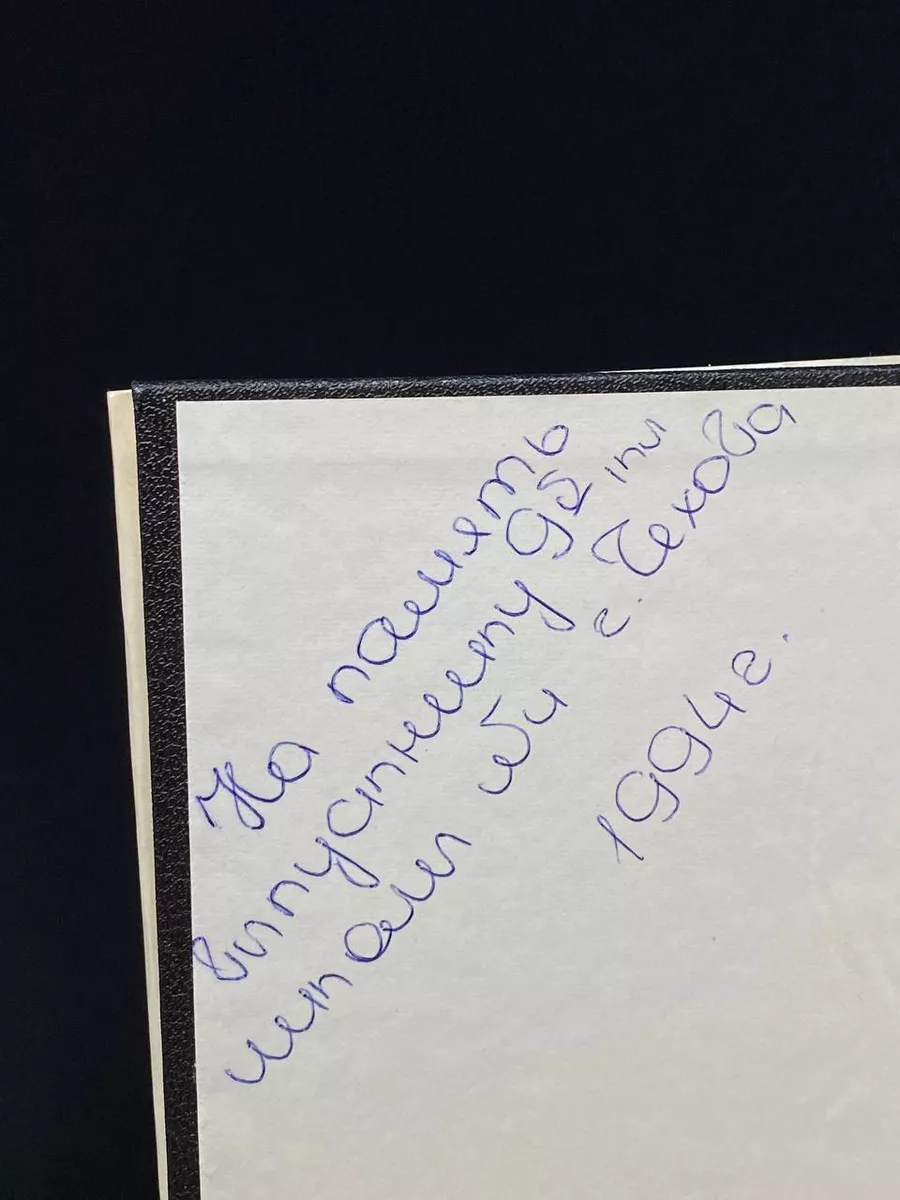 На память
выпускнику 9Б кл
школы №4 г. Чехова
1994 г.